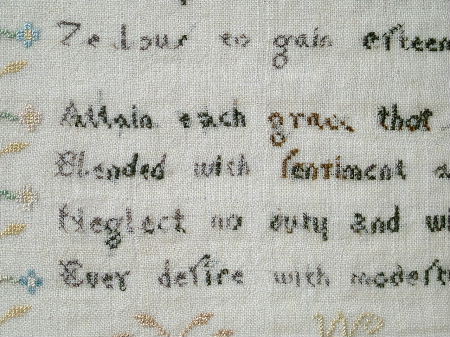 Zealous to gain esteem
Attain each grace that
Blended with sentiment a
Neglect no duty and wi
Ever desire with modesty
W